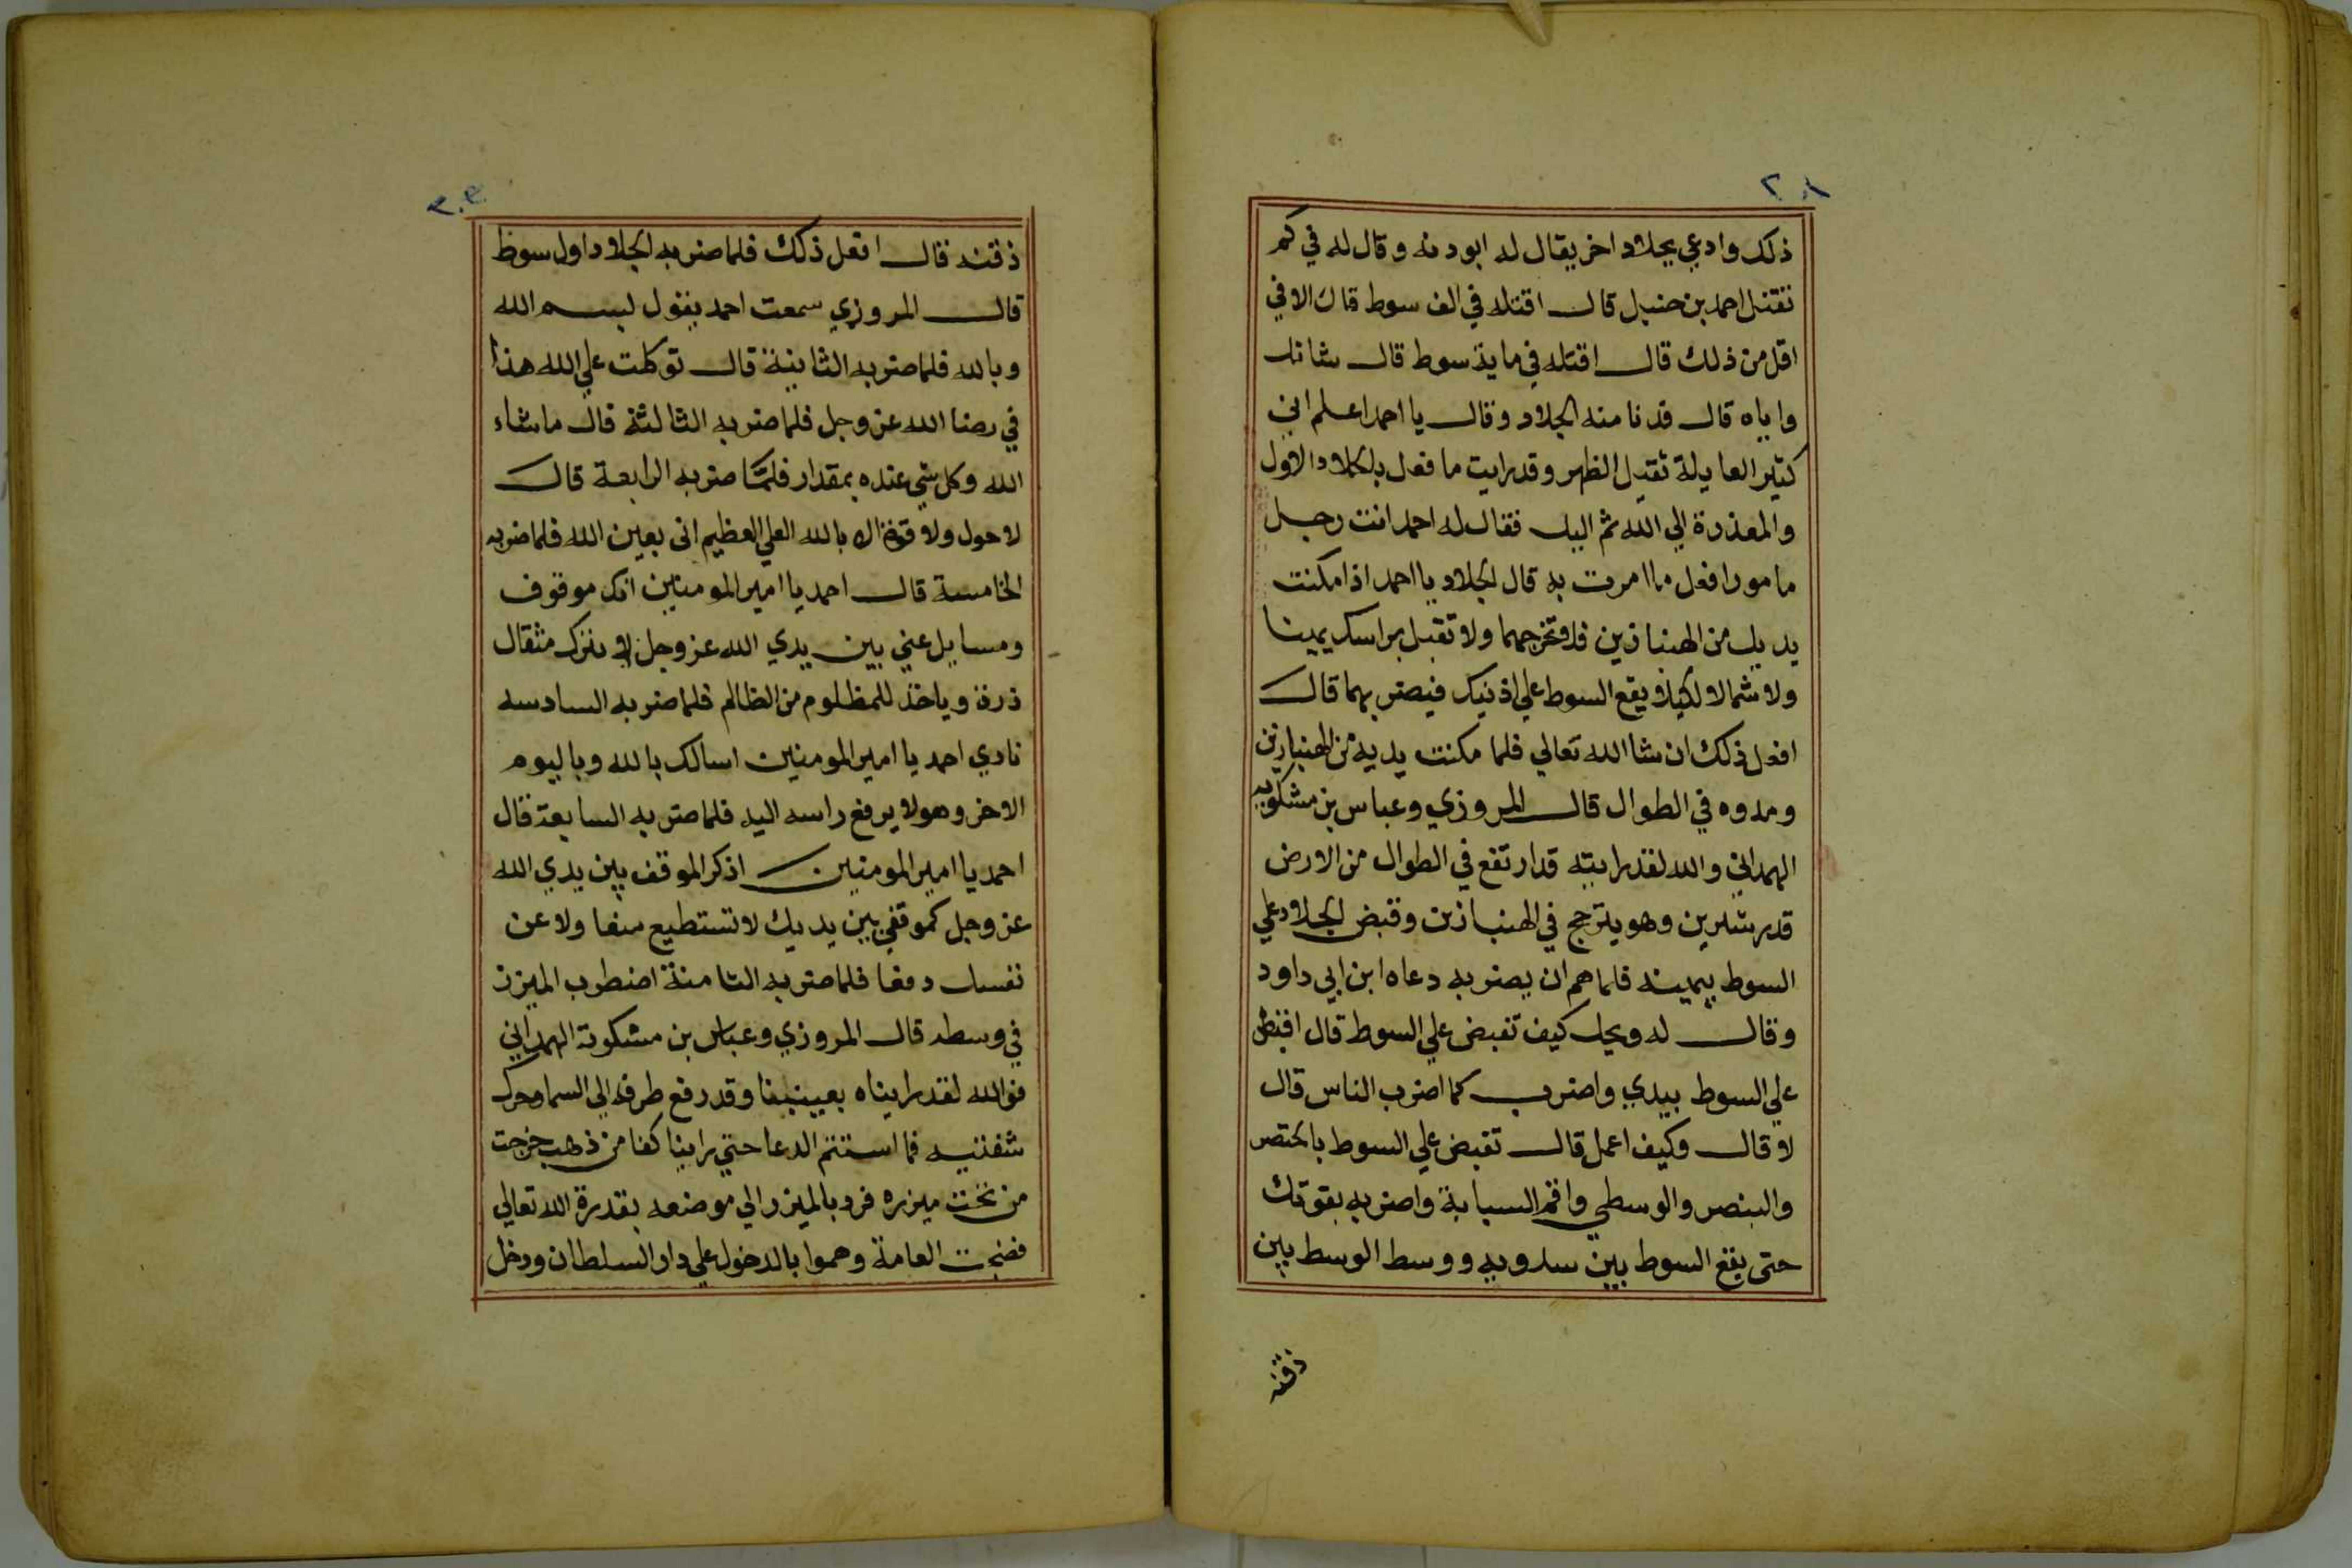 ٢٠٨
ذلك وادعي بجلاد اخر يقال له ابودنه وقال له في كم
تقتل احمد بن حنبل قال اقتله في الف سوط قال الا في
اقل من ذلك قال اقتله في ماية سوط قال شانك
واياه قال فدنا منه الجلاد وقال يا احمد اعلم اني
كثير العايلة ثقيل الظهر وقد رايت ما فعل بالجلاد الاول
والمعذرة الي الله ثم اليك فقال له احمد انت رجل
مامور افعل ما امرت به قال الجلاد يا احمد اذا مكنت
يديك من الهنبازين فلا تخرجهما ولا تقبل براسك يمينا
ولا شمالا لكيلا يقع السوط علي اذنيك فيضر بهما قال
افعل ذلك ان شا الله تعالي فلما مكنت يديه من الهنبازين
ومدوه في الطوال قال المروزي وعباس بن مشكويه
الهمداني والله لقد رايته قد ارتفع في الطوال من الارض
قدر شبرين وهو يترجح في الهنبازين وقبض الجلاد علي
السوط بيمينه فلما هم ان يضربه دعاه ابن ابي داود
وقال له ويحك كيف تقبض علي السوط قال اقبض
علي السوط بيدي واضرب كما اضرب الناس قال
لا قال وكيف اعمل قال تقبض علي السوط بالخنصر
والبنصر والوسطي واقم السبابة واضربه بقوتك
حتى يقع السوط بين ووسط الوسط بين
ذقنه
٢٠٩
ذقنه قال افعل ذلك فلما ضربه الجلاد اول سوط
قال المروزي سمعت احمد يقول بسم الله
وبالله فلما ضربه الثانية قال توكلت علي الله هذا
في رضا الله عز وجل فلما ضربه الثالثة قال ما شاء
الله وكل شي عنده بمقدار فلما ضربه الرابعة قال
لا حول ولا قوة الا بالله العلي العظيم انى بعين الله فلما ضربه
الخامسة قال احمد يا امير المومنين انك موقوف
ومسايل عني بين يدي الله عز وجل لا يترك مثقال
ذرة وياخذ للمظلوم من الظالم فلما ضربه السادسه
نادي احمد يا امير المومنين اسالك بالله وباليوم
الاخر وهو لا يرفع راسه اليه فلما ضربه السابعة قال
احمد يا امير المومنين اذكر الموقف بين يدي الله
عز وجل كموقفي بين يديك لا تستطيع منعا ولا عن
نفسك دفعا فلما ضربه الثامنة اضطرب الميزر
في وسطه قال المروزي وعباس بن مشكوية الهمداني
فوالله لقد رايناه بعينينا وقد رفع طرفه الي السما وحرك
شفتيه فما استتم الدعا حتي راينا كفا من ذهب خرجت
من تحت ميزره فرد بالميزر الي موضعه بقدرة الله تعالي
فضجت العامة وهموا بالدخول علي دار السلطان ودخل